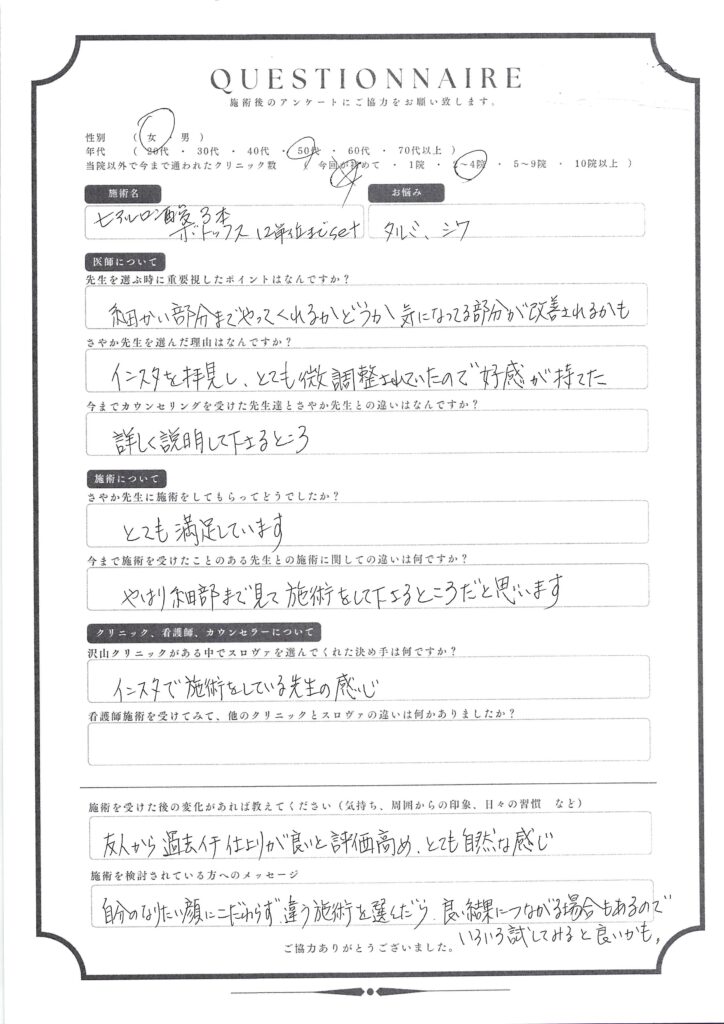 QUESTIONNAIRE
施術後のアンケートにご協力をお願い致します。
性別 ( 女 ・ 男 )
年代 ( 20代 ・ 30代 ・ 40代 ・ 50代 ・ 60代 ・ 70代以上 )
当院以外で今まで通われたクリニック数 ( 今回が初めて ・ 1院 ・ 2~4院 ・ 5~9院 ・ 10院以上 )
施術名
お悩み
ヒアルロン酸 3本
ボトックス 12単位までset
タルミ、シワ
医師について
先生を選ぶ時に重要視したポイントはなんですか?
細かい部分までやってくれるかどうか 気になってる部分が改善されるかも
さやか先生を選んだ理由はなんですか?
インスタを拝見し、とても微調整されていたので好感が持てた
今までカウンセリングを受けた先生達とさやか先生との違いはなんですか?
詳しく説明して下さるところ
施術について
さやか先生に施術をしてもらってどうでしたか?
とても満足しています
今まで施術を受けたことのある先生との施術に関しての違いは何ですか?
やはり細部まで見て施術をして下さるところだと思います
クリニック、看護師、カウンセラーについて
沢山クリニックがある中でスロヴァを選んでくれた決め手は何ですか?
インスタで施術をしている先生の感じ
看護師施術を受けてみて、他のクリニックとスロヴァの違いは何かありましたか?
施術を受けた後の変化があれば教えてください(気持ち、周囲からの印象、日々の習慣 など)
友人から過去イチ仕上りが良いと評価高め、とても自然な感じ
施術を検討されている方へのメッセージ
自分のなりたい顔にこだわらず違う施術を選んだら、良い結果につながる場合もあるので
いろいろ試してみると良いかも。
ご協力ありがとうございました。